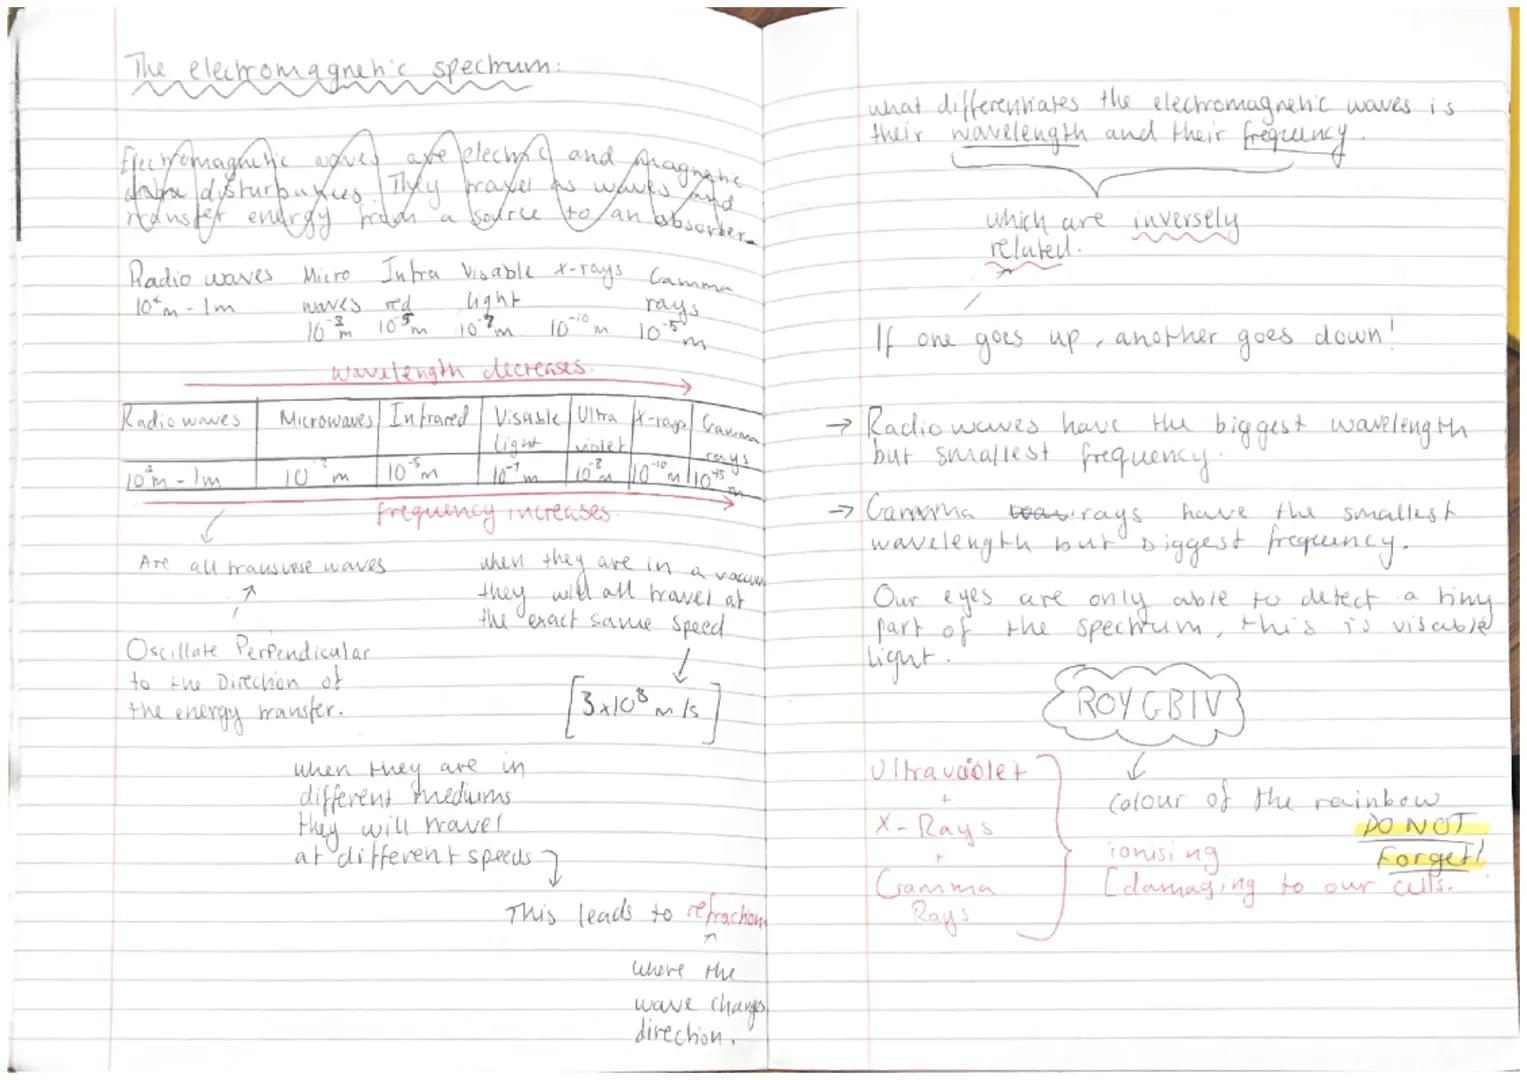 The electromagnetic spectrum:
Electromagnetic waves are electric and magnetic
disturbances. They travel as waves and
transfer energy from a source to an absorber.
Radio waves Micro Infra Visable x-rays Gamma
10⁴m - 1m waves red light rays
10⁻²m 10⁻⁵m 10⁻⁷m 10⁻¹⁰m 10⁻¹⁵m
wavelength decreases.
Radio waves Microwaves Infrared Visable Ultra X-rays Gamma
light violet rays
10⁴m - 1m 10⁻²m 10⁻⁵m 10⁻⁷m 10⁻⁸m 10⁻¹⁰m 10⁻¹⁵m
frequency increases.
Are all transvese waves
Oscillate Perpendicular
to the Direction of
the energy transfer.
when they are in a vaccum
they will all travel at
the exact same speed
[3x10⁸ m/s]
when they are in
different mediums
they will travel
at different speeds
This leads to refraction
where the
wave changes
direction.
what differentiates the electromagnetic waves is
their wavelength and their frequency.
which are inversely
related.
If one goes up, another goes down!
→ Radiowaves have the biggest wavelength
but smallest frequency.
→ Gamma rays have the smallest
wavelength but biggest frequency.
Our eyes are only able to detect a tiny
part of the spectrum, this is visable
light.
ROYGBIV
colour of the rainbow
DO NOT
Forget!
Ultravoiolet
+
X-Rays
+
Gamma
Rays
ionising
[damaging to our cells.